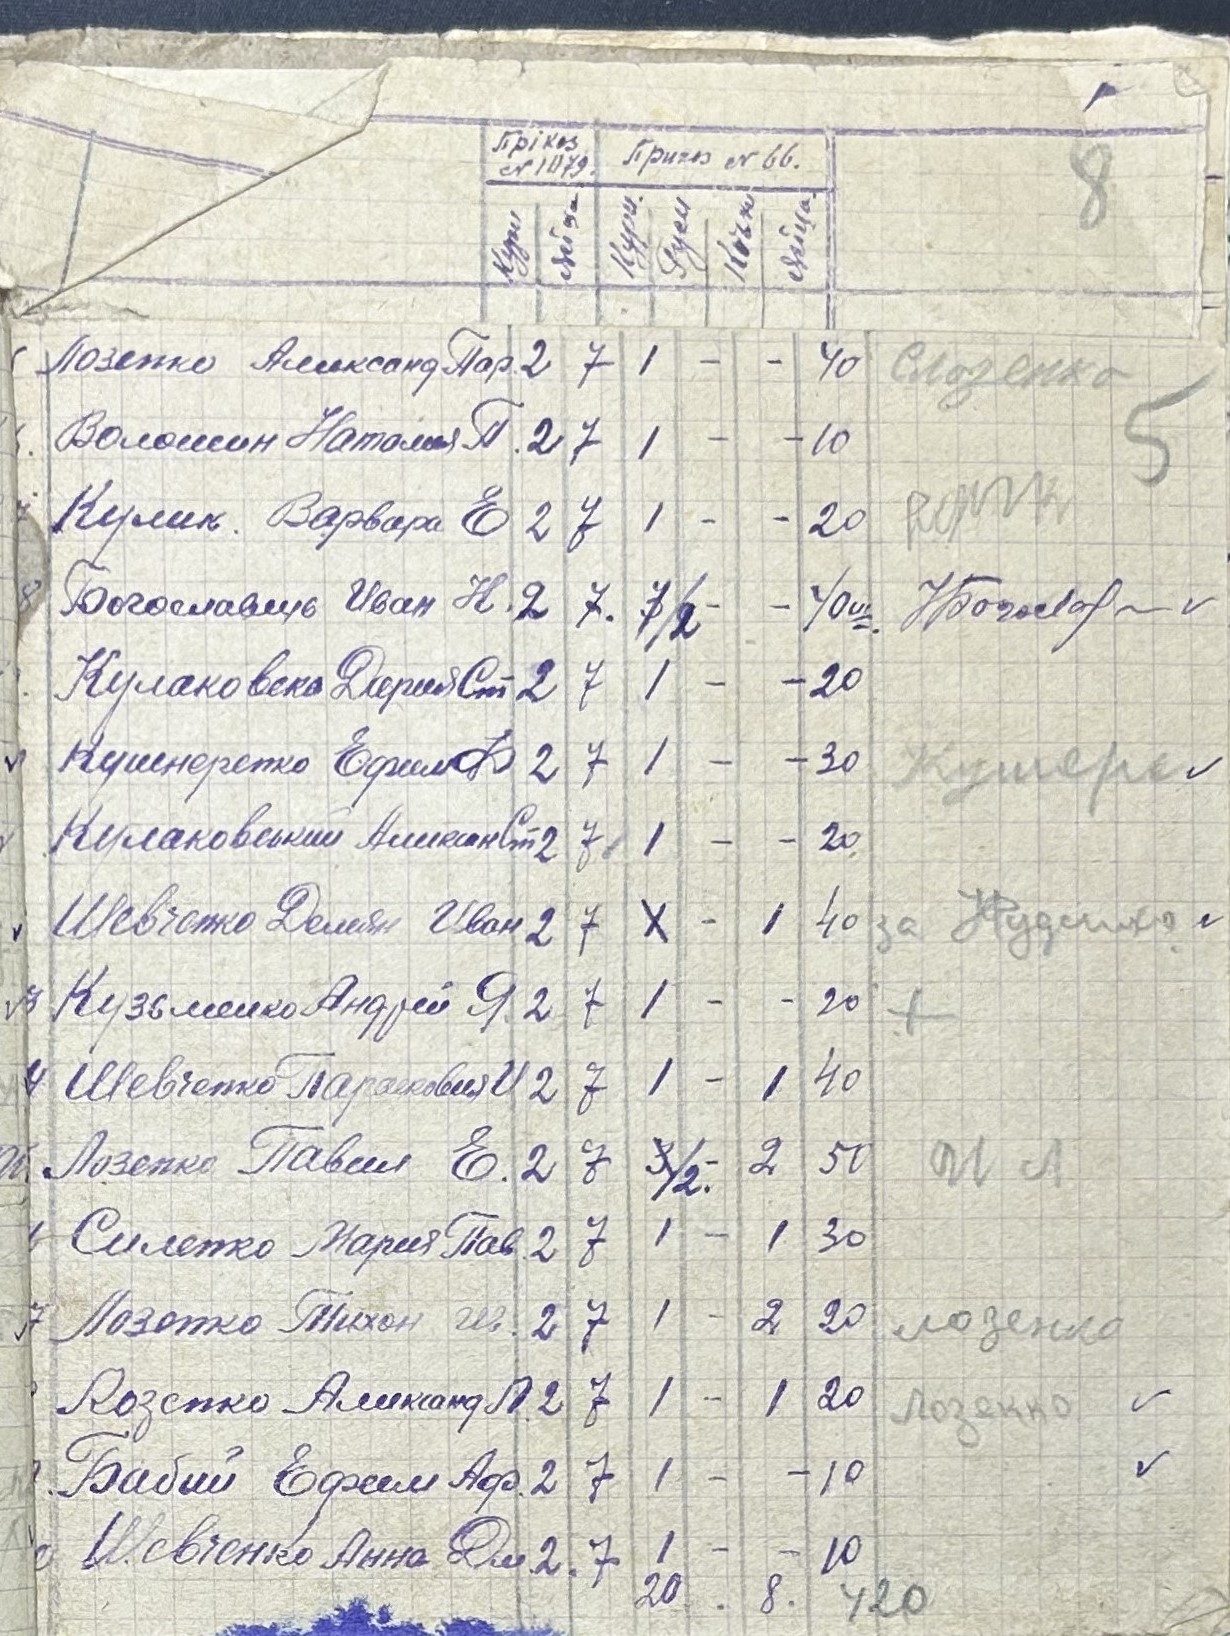 Прiкоз Приказ № 66.
№ 1079.
Кури Яйца Кури Гуси Качки Яйца
8
Лозенко Александ Пар. 2 7 1 - - 40 Слозенко
5
Волошин Наталия П. 2 7 1 - - 10
Кулик. Варвара Е 2 7 1 - - 20
8 Богославець Иван Н. 2 7. 7/2 - - 40 шт.
Кулаковска Дария Ст 2 7 1 - - 20
Кушнеренко Ефим Ф 2 7 1 - - 30 Кушнере
Кулаковський Алексан Ст 2 7 1 - - 20
Шевченко Демян Иван 2 7 X - 1 40 за
3 Кузьменко Андрій Я. 2 7 1 - - 20 +
4 Шевченко Парасковия И 2 7 1 - 1 40
Лозенко Павил Е. 2 7 3/2. - 2 50 П Л
Силенко Мария Пав. 2 7 1 - 1 30
7 Лозенко Тихон 2 7 1 - 2 20 лозенко
Лозенко Александ П. 2 7 1 - 1 20 Лозенко
Бабий Ефим Аф. 2 7 1 - - 10
Шевченко Анна Дм 2. 7 1 - - 10
20 . 8. 420